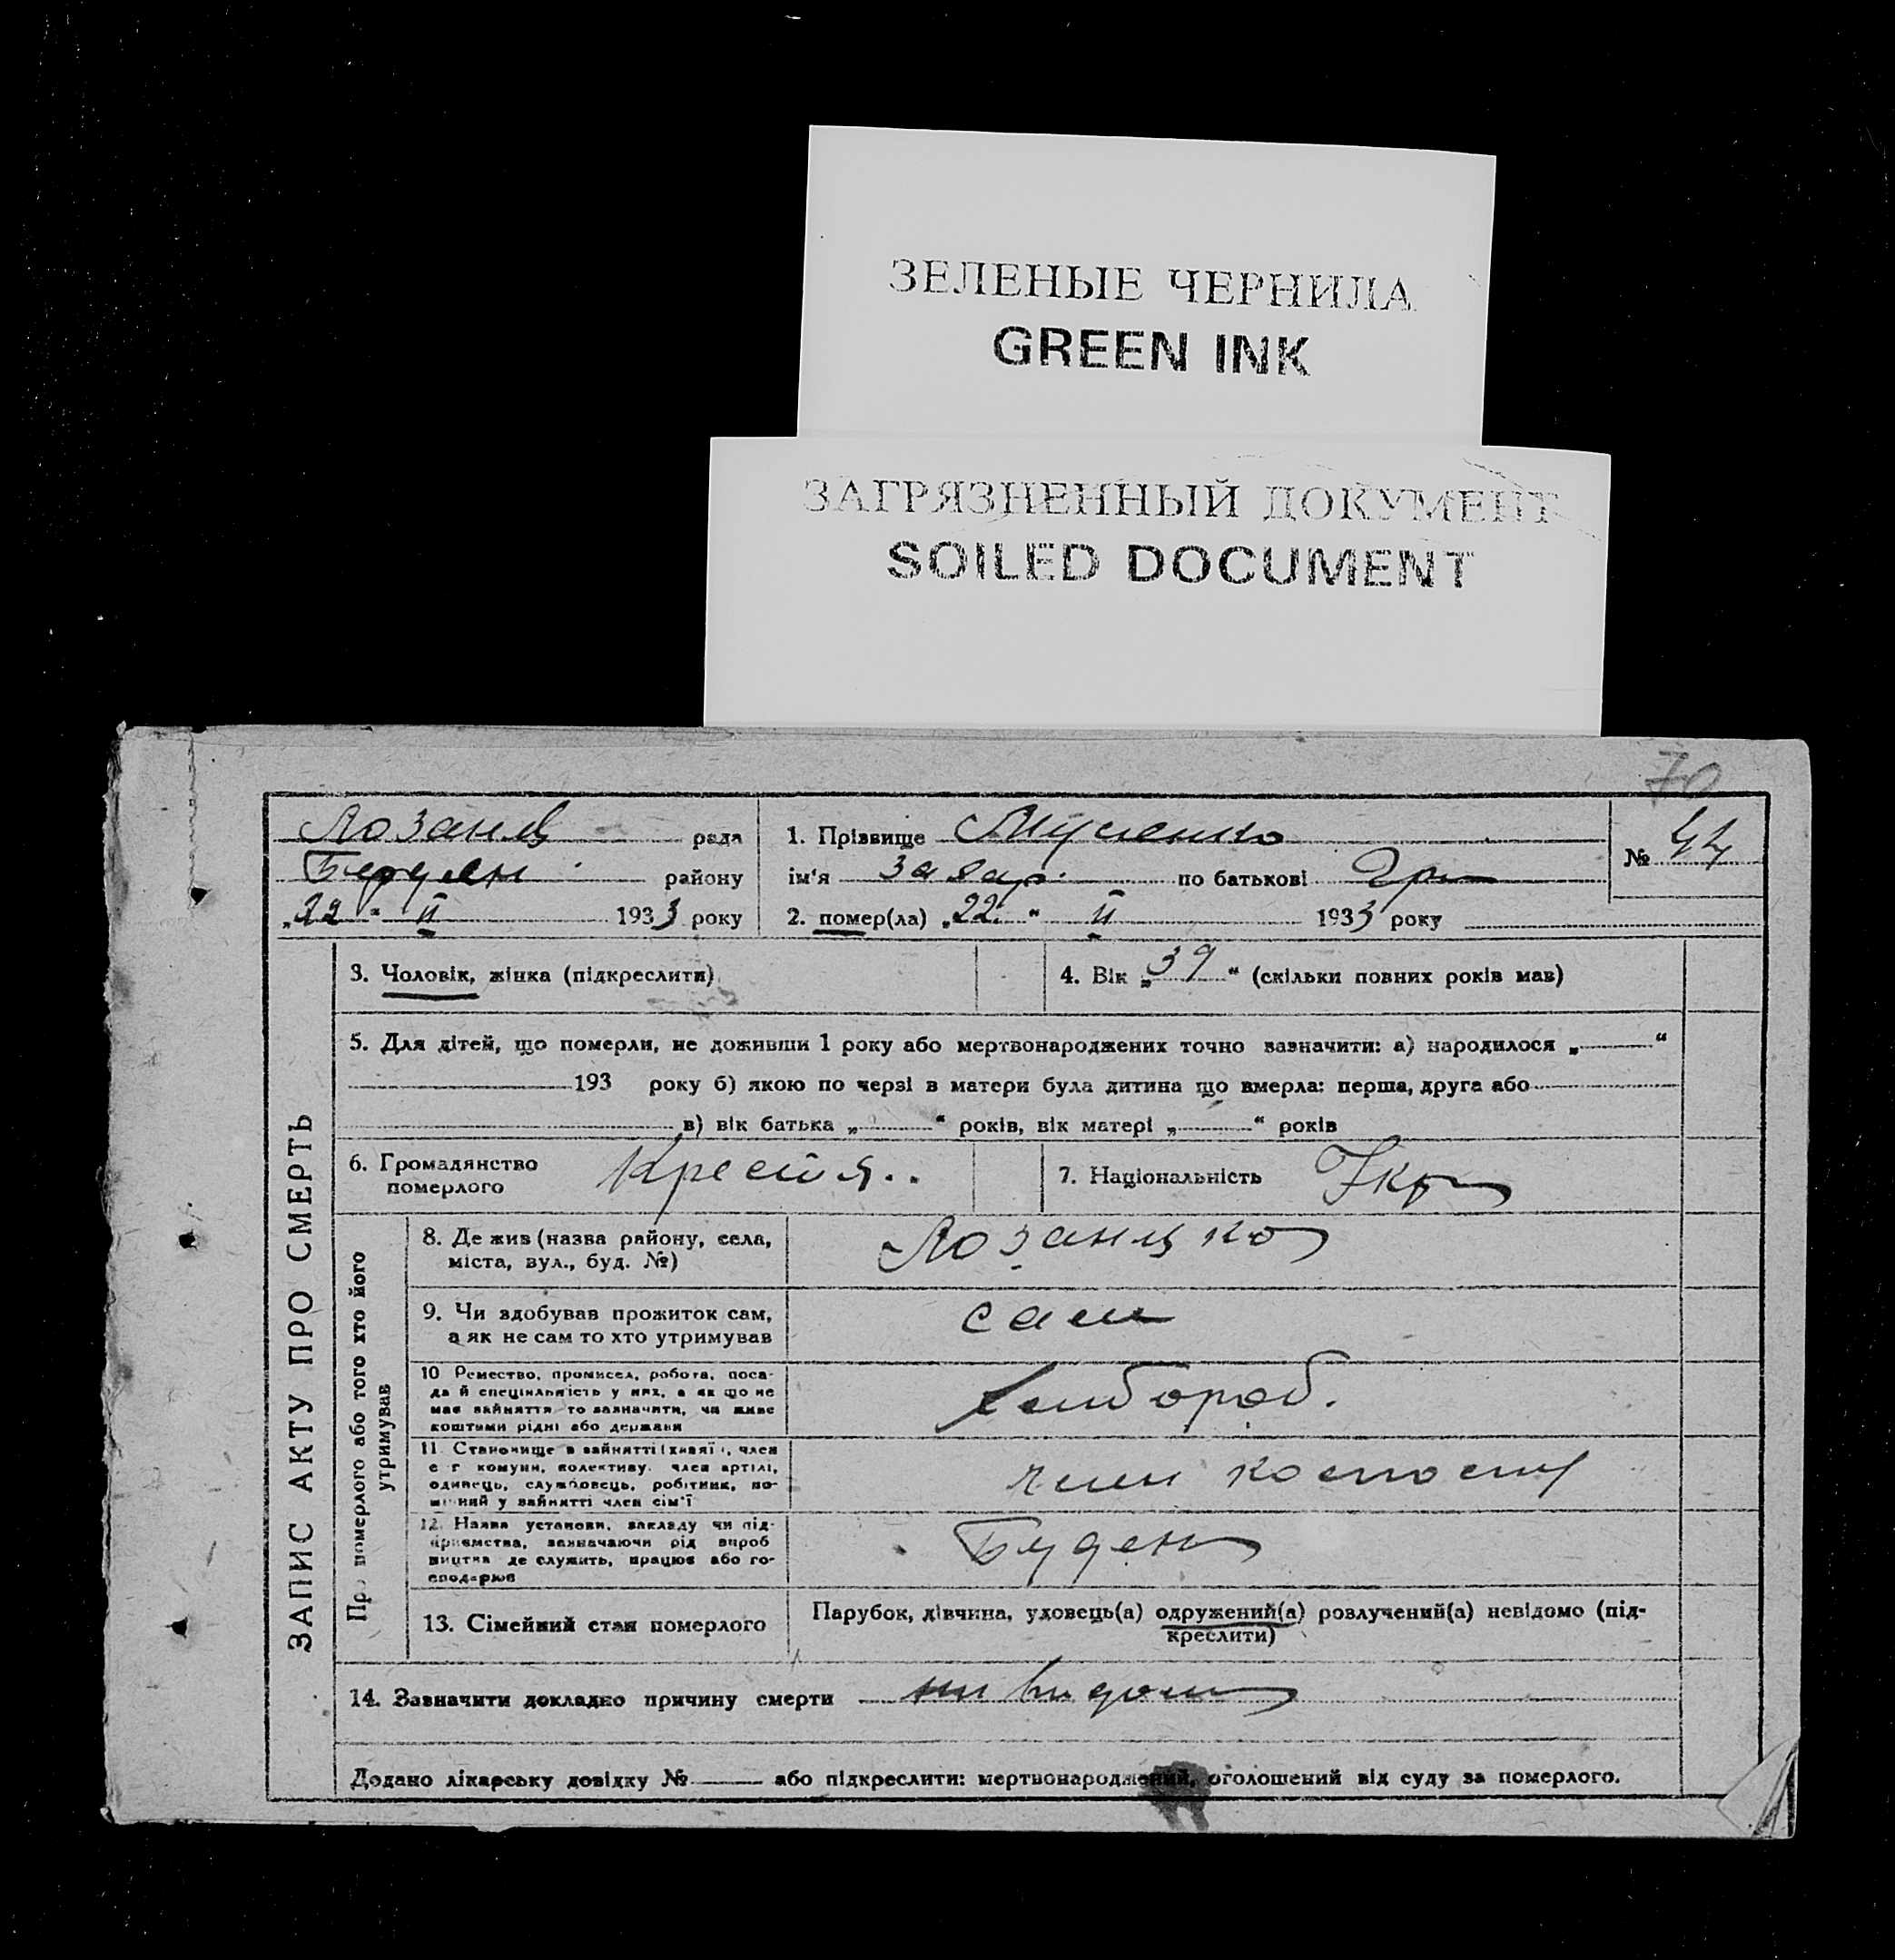 ЗЕЛЕНЫЕ ЧЕРНИЛА
GREEN INK
ЗАГРЯЗНЕННЫЙ ДОКУМЕНТ
SOILED DOCUMENT
70
рада
1. Прізвище
№ 44
району
ім'я Захар. по батькові Гри
„22" II 1933 року
2. помер(ла) „22" II 1933 року
ЗАПИС АКТУ ПРО СМЕРТЬ
3. Чоловік, жінка (підкреслити)
4. Вік „39" (скільки повних років мав)
5. Для дітей, що померли, не доживши 1 року або мертвонароджених точно зазначити: а) народилося „ "
193 року б) якою по черзі в матери була дитина що вмерла: перша, друга або
в) вік батька „ " років, вік матері „ " років
6. Громадянство
померлого
Крестя..
7. Національність Укр
Про померлого або того хто його
утримував
8. Де жив (назва району, села,
міста, вул., буд. №)
9. Чи здобував прожиток сам,
а як не сам то хто утримував
сам
10 Ремество, промисел, робота, поса-
да й спеціяльність у них, а як що не
має зайняття то зазначити, чи живе
коштами рідні або держави
хлібороб.
11 Становище в зайнятті (хазяїн, член
с г комуни, колективу, член артілі,
одинець, службовець, робітник, по-
мічний у зайнятті член сім'ї
член
12. Назва установи, закладу чи під-
приємства, зазначаючи рід вироб
ництва де служить, працює або го-
сподарює
Буден
13. Сімейний стан померлого
Парубок, дівчина, удовець(а) одружений(а) розлучений(а) невідомо (під-
креслити)
14. Зазначити докладно причину смерти
Додано лікарську довідку № або підкреслити: мертвонароджений, оголошений від суду за померлого.